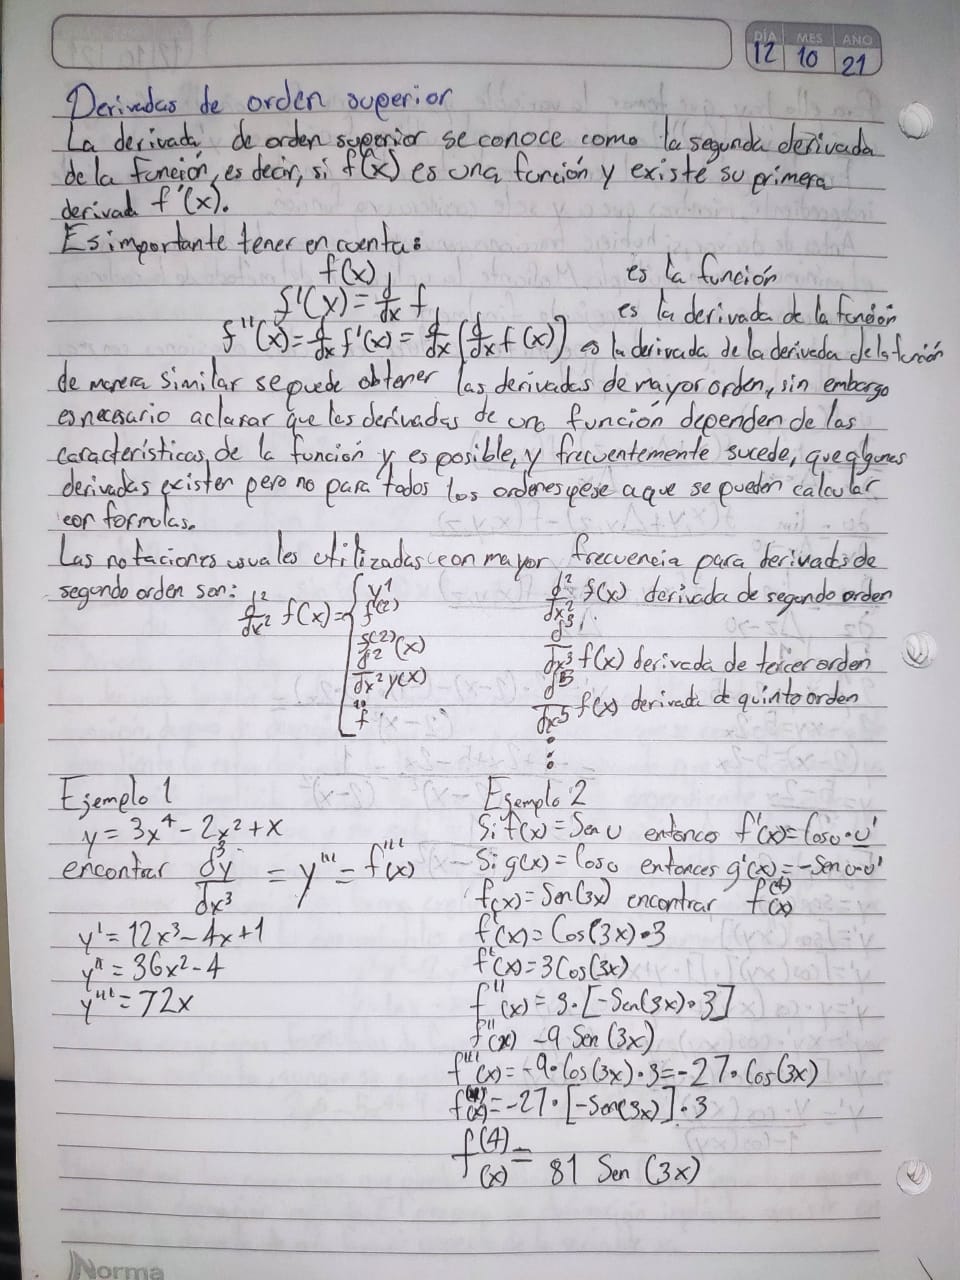 DÍA MES AÑO
12 10 21
Derivadas de orden superior
La derivada de orden superior se conoce como la segunda derivada
de la función, es decir, si f(x) es una función y existe su primera
derivad f'(x).
Es importante tener en cuenta:
f(x) es la función
f'(x) = d/dx f es la derivada de la función
f''(x) = d/dx f'(x) = d/dx [d/dx f(x)] es la derivada de la derivada de la función
de manera similar se puede obtener las derivadas de mayor orden, sin embargo
es necesario aclarar que las derivadas de una función dependen de las
características de la función y es posible, y frecuentemente sucede, que algunas
derivadas existen pero no para todos los ordenes pese a que se pueden calcular
con formulas.
Las notaciones usuales utilizadas con mayor frecuencia para derivads de
segundo orden son:
d²/dx² f(x) =
y'
f(2)
f(2)(x)
d²/dx² y(x)
f
d²/dx² f(x) derivada de segundo orden
d³/dx³ f(x) derivada de tercer orden
d5/dx5 f(x) derivada de quinto orden
Ejemplo 1
y = 3x⁴ - 2x² + x
encontrar d³y/dx³ = y''' = f'''(x)
y' = 12x³ - 4x + 1
y'' = 36x² - 4
y''' = 72x
Ejemplo 2
Si f(x) = Sen u entonces f'(x) = Cos u · u'
Si g(x) = Cos u entonces g'(x) = -Sen u · u'
f(x) = Sen(3x) encontrar f(4)(x)
f'(x) = Cos(3x) · 3
f'(x) = 3 Cos(3x)
f''(x) = 3 · [-Sen(3x) · 3]
f''(x) -9 Sen (3x)
f'''(x) = -9 · Cos(3x) · 3 = -27 · Cos(3x)
f(x) = -27 · [-Sen(3x)] · 3
f(4)(x) = 81 Sen (3x)
Norma